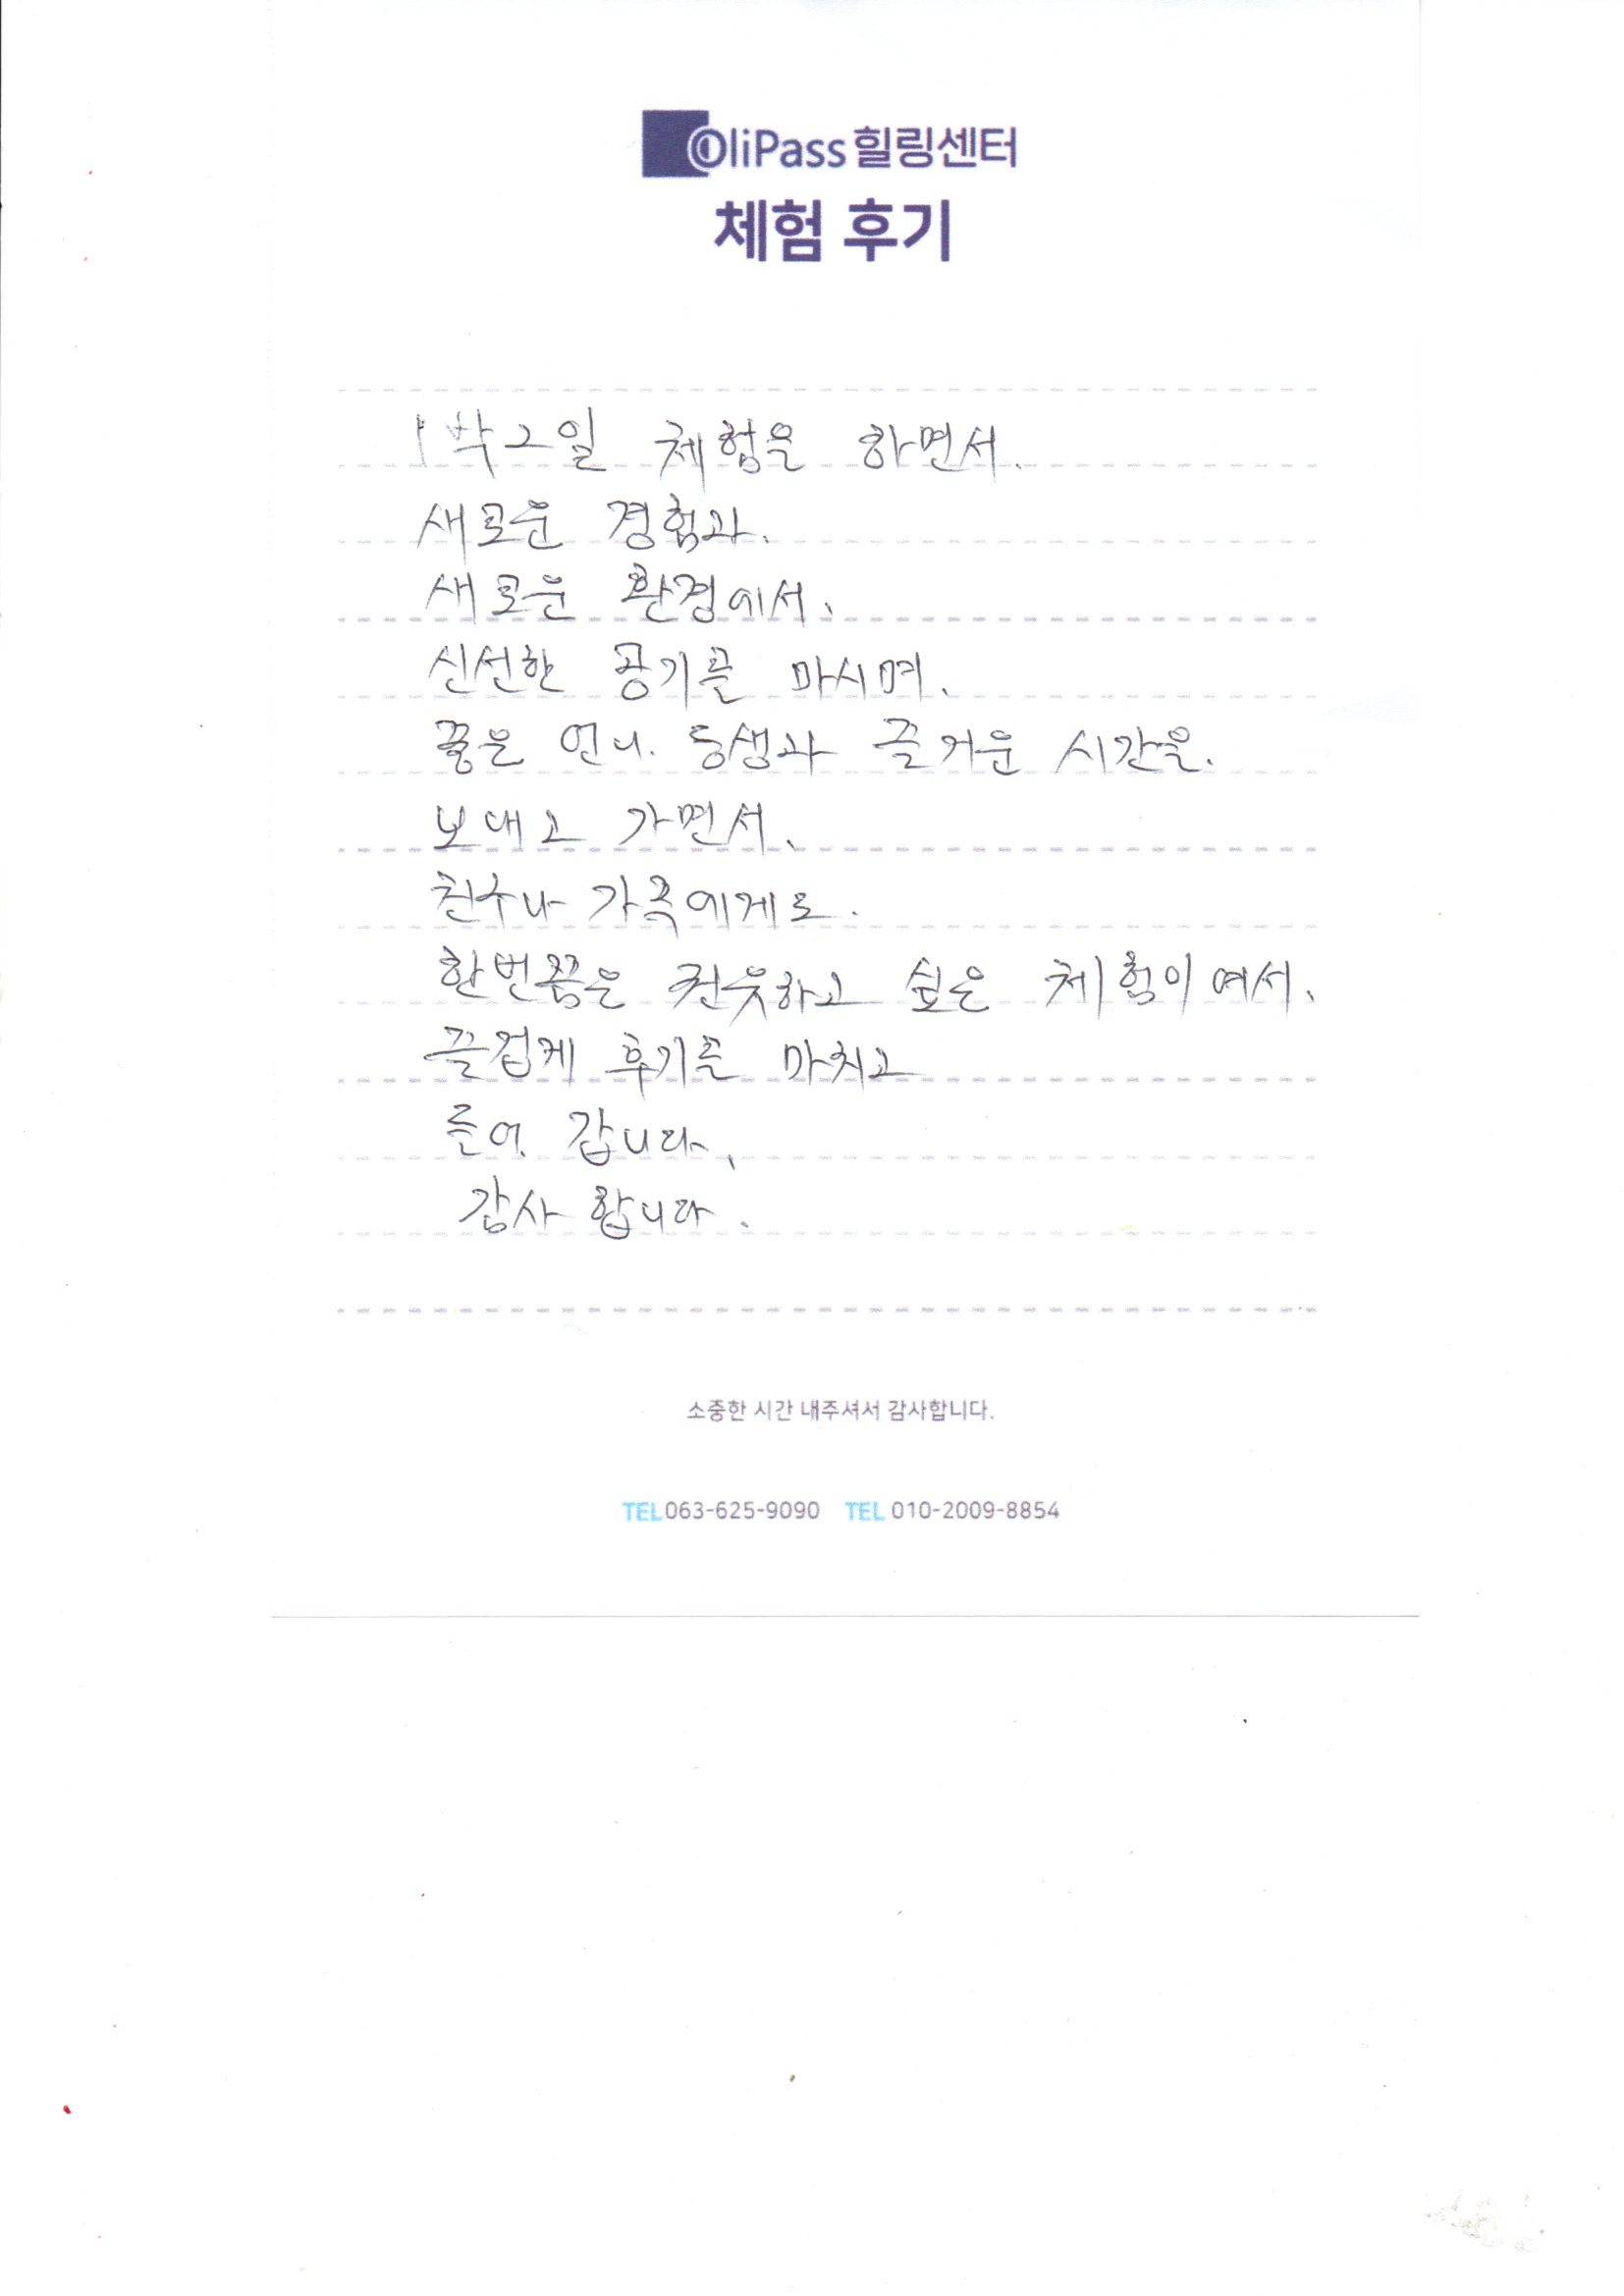 OliPass 힐링센터
체험 후기
1박 2일 체험을 하면서.
새로운 경험과.
새로운 환경에서.
신선한 공기를 마시며.
좋은 언니. 동생과 즐거운 시간을.
보내고 가면서.
친구나 가족에게도.
한번쯤은 권유하고 싶은 체험이여서.
즐겁게 후기를 마치고
들어 갑니다.
감사 합니다.
소중한 시간 내주셔서 감사합니다.
TEL 063-625-9090 TEL 010-2009-8854